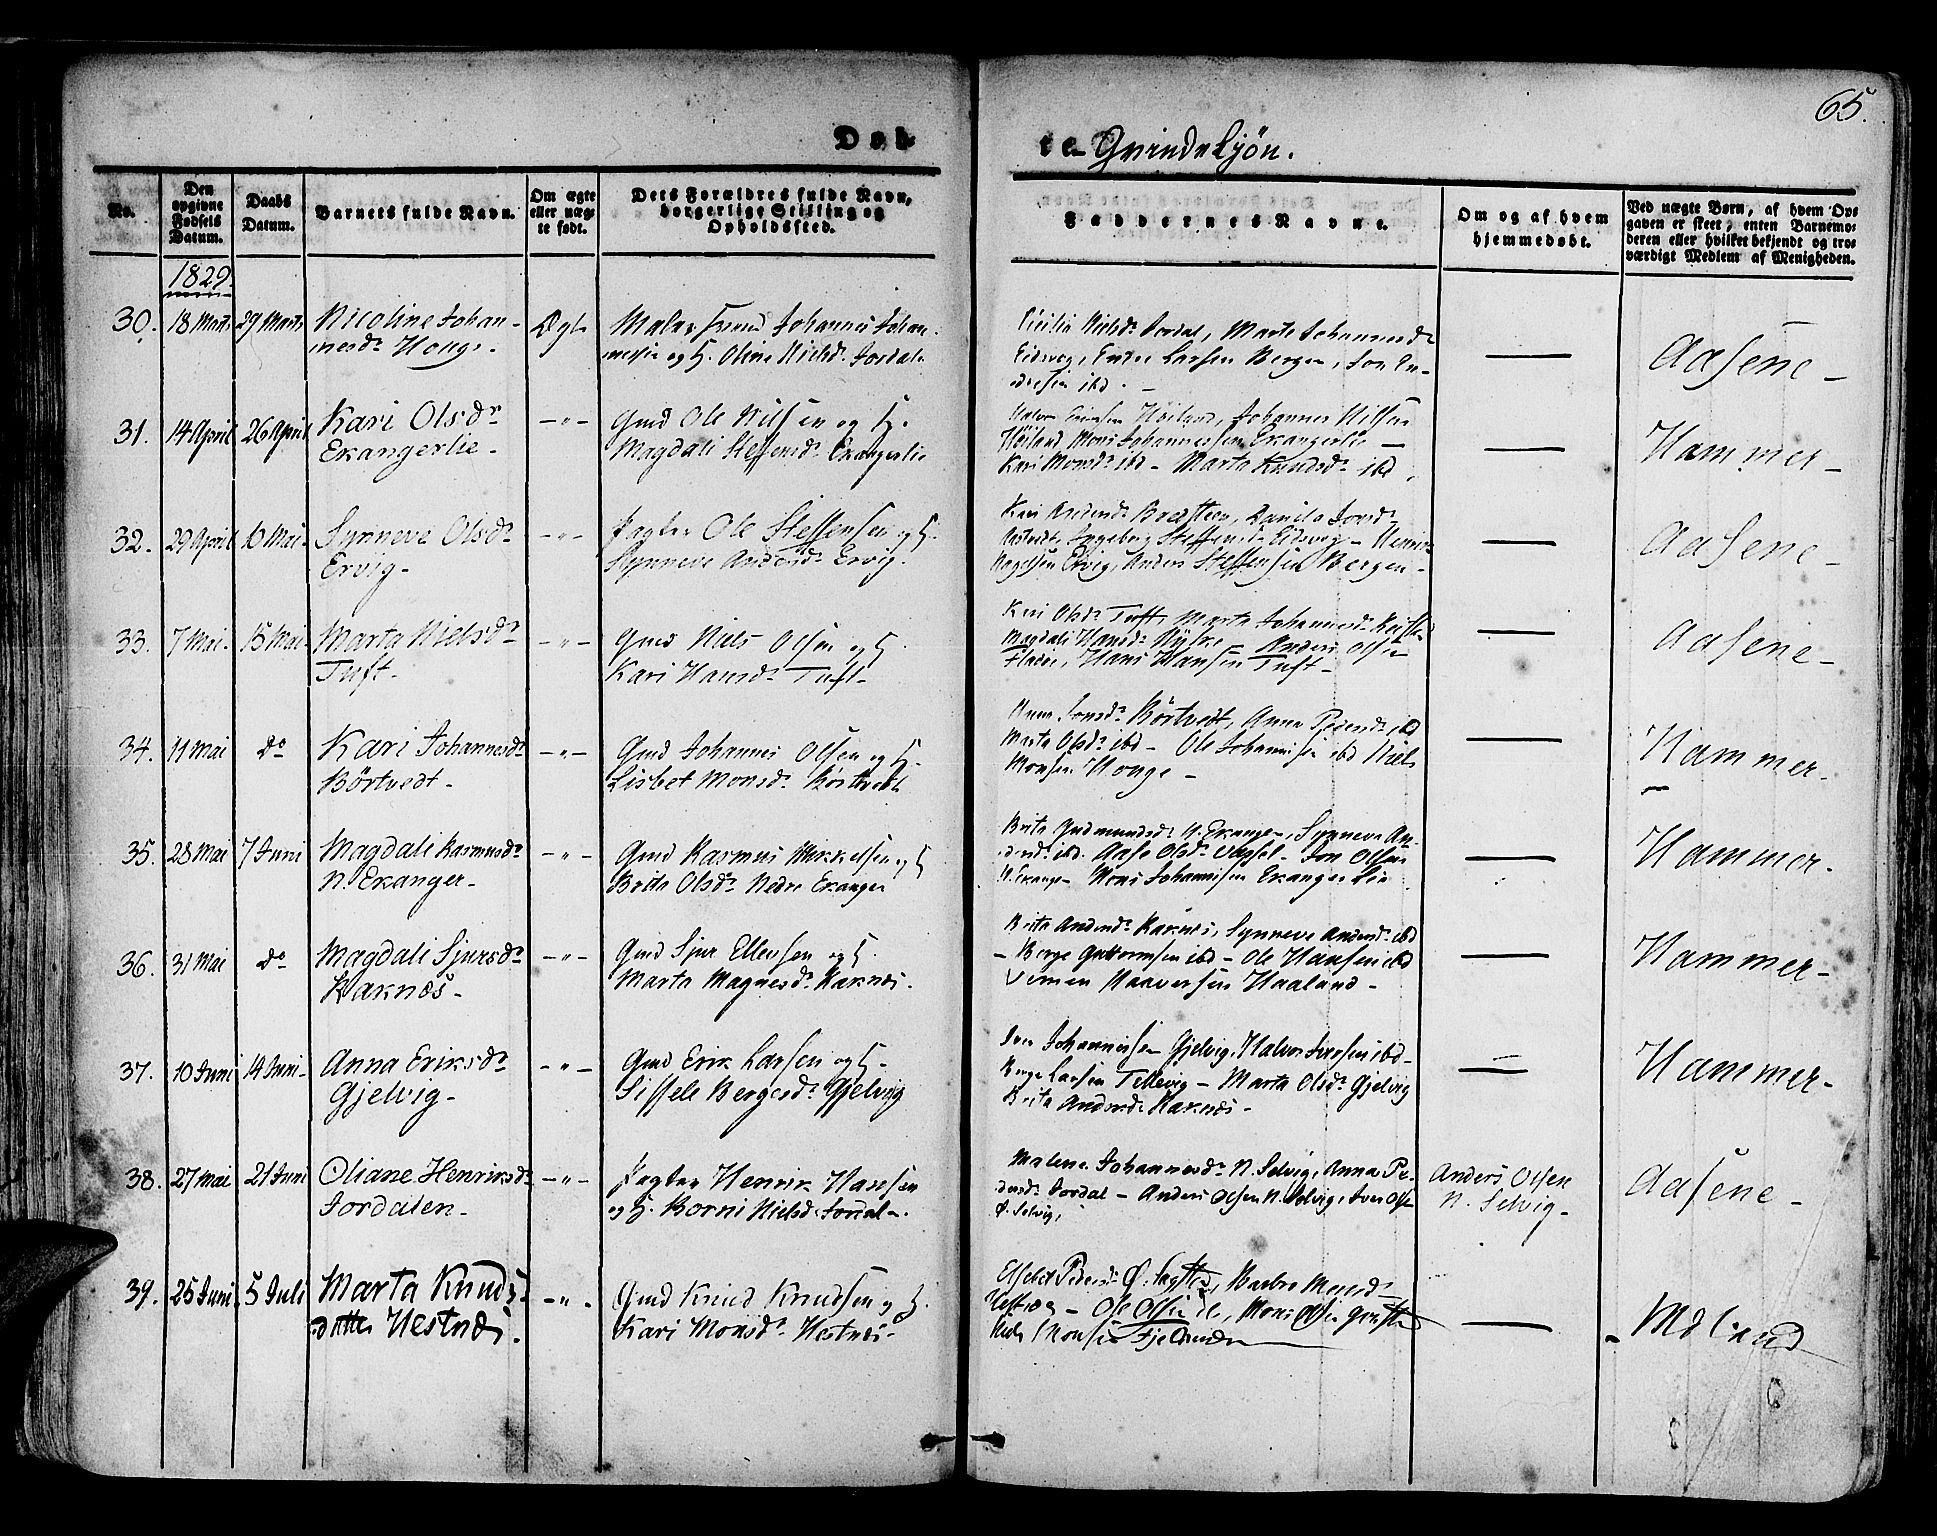 65.
Døbte Qvindekjön.
No.
Den opgivne Fødsels Datum.
Daabs Datum.
Barnets fulde Navn.
Om ægte eller uægte født.
Dets Forældres fulde Navn, borgerlige Stilling og Opholdssted.
Faddernes Navne.
Om og af hvem hjemmedøbt.
Ved uægte Børn, af hvem Opgaven er skeet, enten Barnemoderen eller hvilket bekjendt og troværdigt Medlem af Menigheden.
1829.
30. 18 Marts 29 Marts Nicoline Johan- Ægte Johannes Johan-
nesdr Houge. nessen og H. Oline Nielsdr Jordal
Cicilia Nielsdr Jordal, Marte Johannesdr
Eidsvog, Larsen Bergen, Jon En-
dresen ibd. -
— Aasene -
31. 14 April 26 April Kari Olsdr -"- Gmd Ole Nilsen og H.
Ekangerlie - Magdali Steffensdr Ekangerlie
Höiland, Johannes Nilsen
Höiland Mons Johannessen Ekangerlie -
Kari Monsdr ibd - Marta Knudsdr ibd,
— Hammer -
32. 29 April 10 Mai - Synneve Olsdr -"- Ole Steffensen og H.
Ervig - Synneve Andersdr Ervig.
Kari Andersdr
Ingeborg Steffensdr Eidsvog - Henrik
Ervig, Anders Steffensen Bergen -
— Aasene -
33. 7 Mai - 15 Mai - Marta Nielsdr -"- Gmd Niels Olsen og H.
Tuft - Kari Hansdr Tuft -
Kari Olsdr Tuft, Marta Johannesdr
Magdali Hansdr - Anders Olsen
Hans Hansen Tuft -
— Aasene -
34. 11 Mai do Kari Johannesdr -"- Gmd Johannes Olsen og H.
Börtvedt - Lisbet Monsdr Börtvedt
Anna Jonsdr Börtvedt, Anna Pedersdr ibd
Marta Olsdr ibd - Ole Johannessen ibd Niels
Monsen Houge -
— Hammer -
35. 28 Mai 7 Juni Magdali Rasmusdr -"- Gmd Rasmus Mikkelsen og H
N. Ekanger - Brita Olsdr Nedre Ekanger
Brita Gudmundsdr N. Ekanger, Synneve An-
dersdr ibd. Aase Olsdr - Jon Olsen
N. Ekanger - Mons Johannessen Ekangerlie
— Hammer -
36. 31 Mai do Magdali Sjursdr -"- Gmd Sjur Ellevsen og H.
Kaknæs - Marta Magnesdr Kaknæs.
Brita Andersdr Kaknæs, Synneve Andersdr ibd
- Berge Guttormsen ibd - Ole Hansen ibd
Haaversen Haaland -
— Hammer -
37. 10 Juni 14 Juni - Anna Eriksdr -"- Gmd Erik Larsen og H -
Gjelvig - Sissele Bergesdr Gjelvig
Iver Johannessen Gjelvig, Halvor Iversen ibd -
Berge Larsen Tellevig - Marta Olsdr Gjelvig
Brita Andersdr Kaknæs -
— Hammer -
38. 27 Mai 21 Juni Oliane Henriksdr -"- Henrik Hansen
Jordalen - og H. Borni Nielsdr Jordal -.
Malene Johannesdr N. Selvig, Anna Pe-
dersdr Jordal - Anders Olsen N. Selvig, Iver Olsen
Ø. Selvig,
Anders Olsen
N. Selvig -
Aasene -
39. 25 Juni 5 Juli Marta Knuds- -"- Gmd Knud Knudsen og H.
datter Hestnæs. Kari Monsdr Hestnæs -
Elsebet Pedersdr Barbro Monsdr
- Ole Olsen do, Mons Olsen
Niels Monsen
— Meland